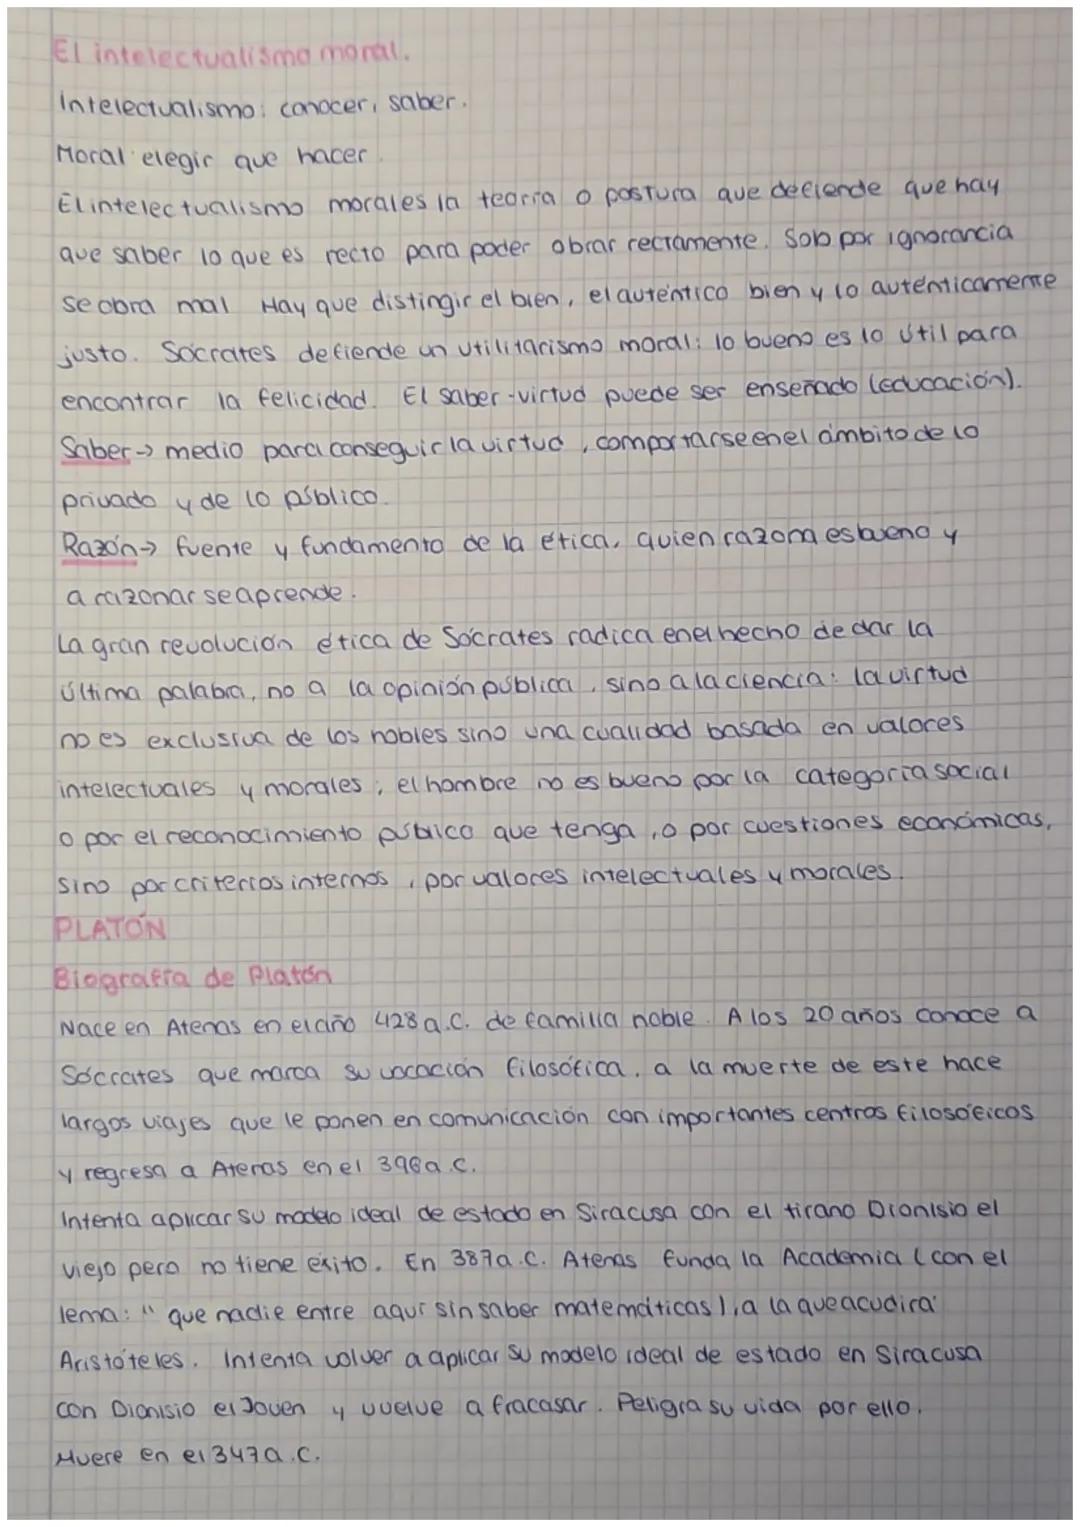 El intelectualismo moral.
Intelectualismo: conocer, saber.
Moral elegir que hacer.
El intelectualismo moral es la teoría o postura que defiende que hay
que saber lo que es recto para poder obrar rectamente. Solo por ignorancia
se obra mal Hay que distingir el bien, el auténtico bien y lo auténticamente
justo. Sócrates defiende un utilitarismo moral: lo bueno es lo útil para
encontrar la felicidad. El saber-virtud puede ser enseñado (educación).
Saber → medio para conseguir la virtud, comportarse en el ámbito de lo
privado y de lo público.
Razón → fuente y fundamento de la ética, quien razona es bueno y
a razonar se aprende.
La gran revolución ética de Sócrates radica en el hecho de dar la
última palabra, no a la opinión pública, sino a la ciencia: la virtud
no es exclusiva de los nobles sino una cualidad basada en valores
intelectuales y morales; el hombre no es bueno por la categoría social
o por el reconocimiento público que tenga, o por cuestiones económicas,
sino por criterios internos, por valores intelectuales y morales.
PLATÓN
Biografía de Platón
Nace en Atenas en el año 428 a.C. de familia noble. A los 20 años conoce a
Sócrates que marca su vocación filosófica, a la muerte de este hace
largos viajes que le ponen en comunicación con importantes centros filosóficos
y regresa a Atenas en el a.C.
Intenta aplicar su modelo ideal de estado en Siracusa con el tirano Dionisio el
viejo pero no tiene éxito. En 387a.C. Atenas funda la Academia (con el
lema: "que nadie entre aquí sin saber matemáticas), a la que acudirá
Aristóteles. Intenta volver a aplicar su modelo ideal de estado en Siracusa
con Dionisio el Joven y vuelve a fracasar. Peligra su vida por ello.
Muere en el 347a.C.